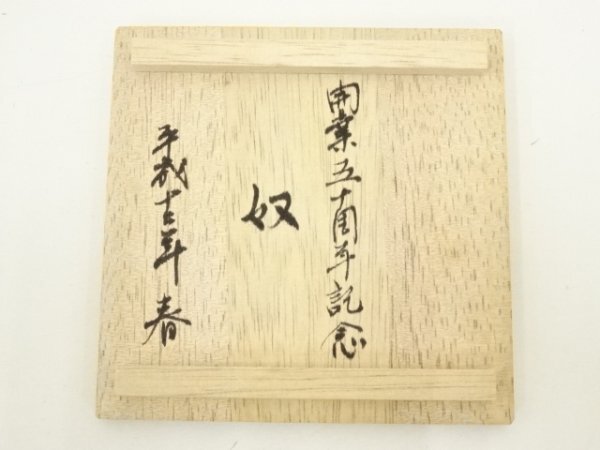 開業五十周年記念
奴
平成十二年 春